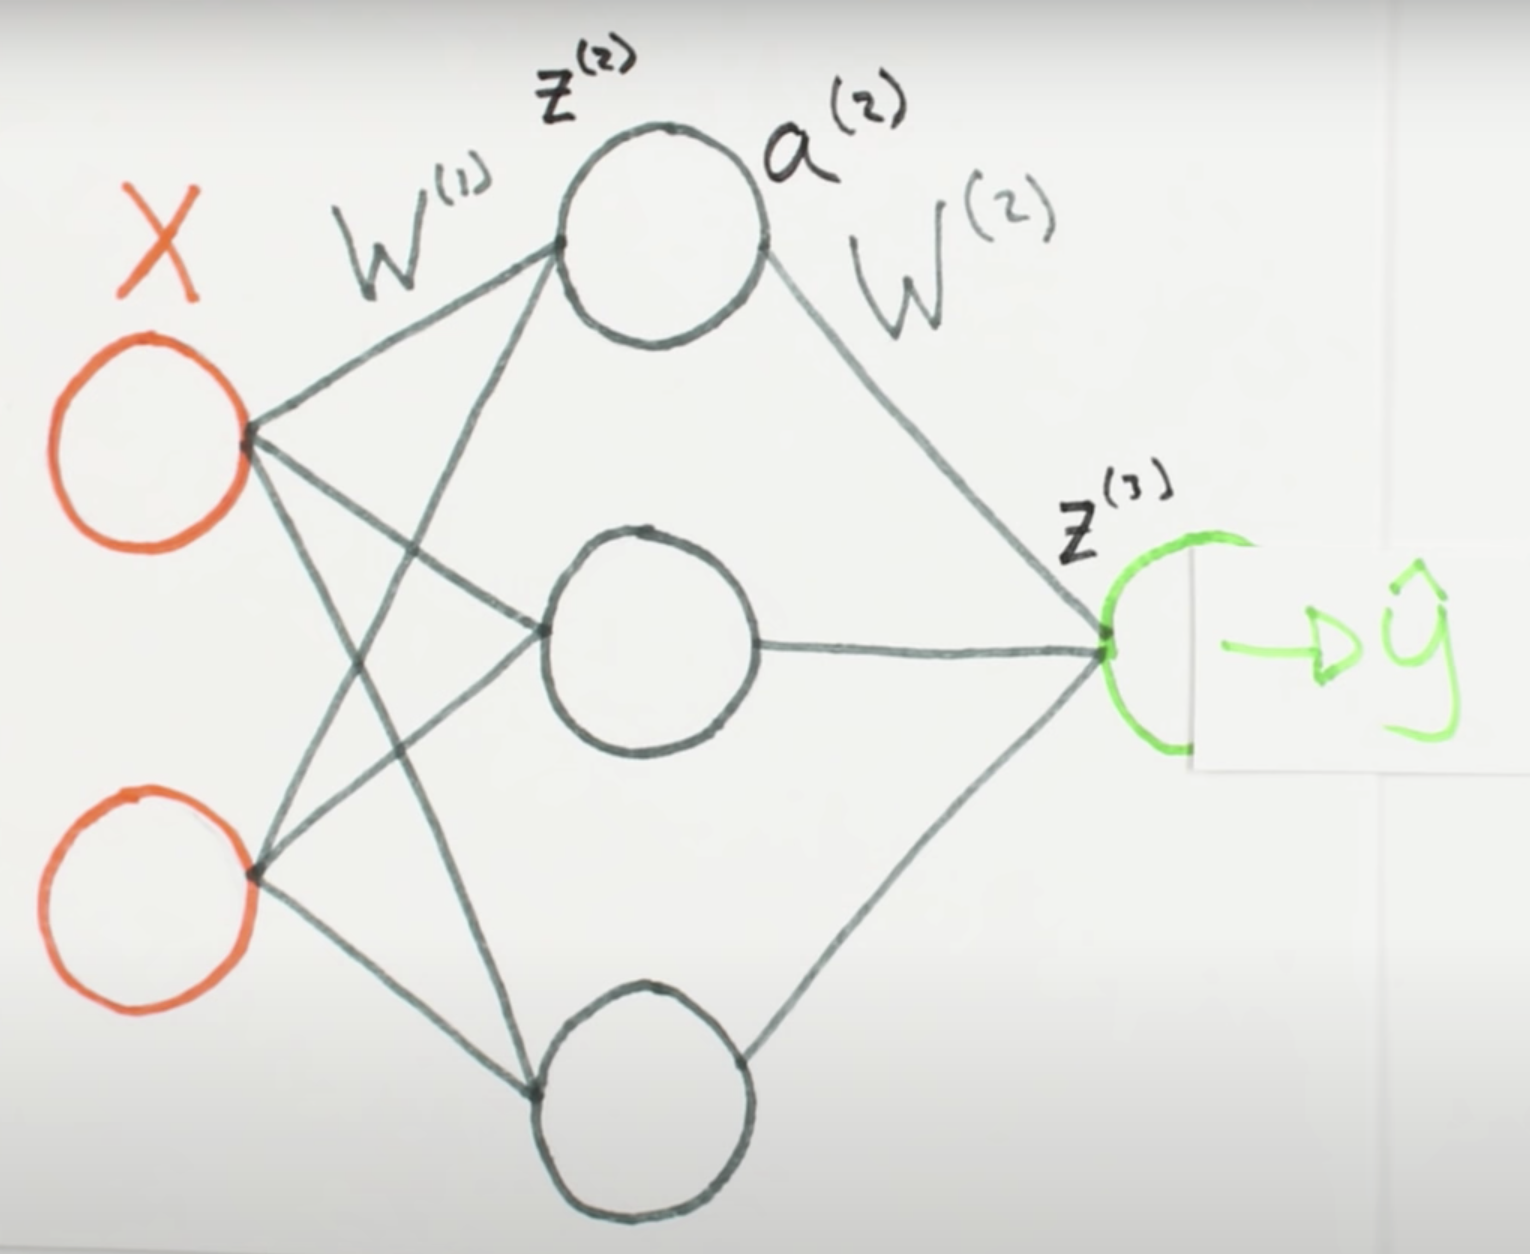 X
W^(1)
z^(2)
a^(2)
W^(2)
z^(3)
ŷ